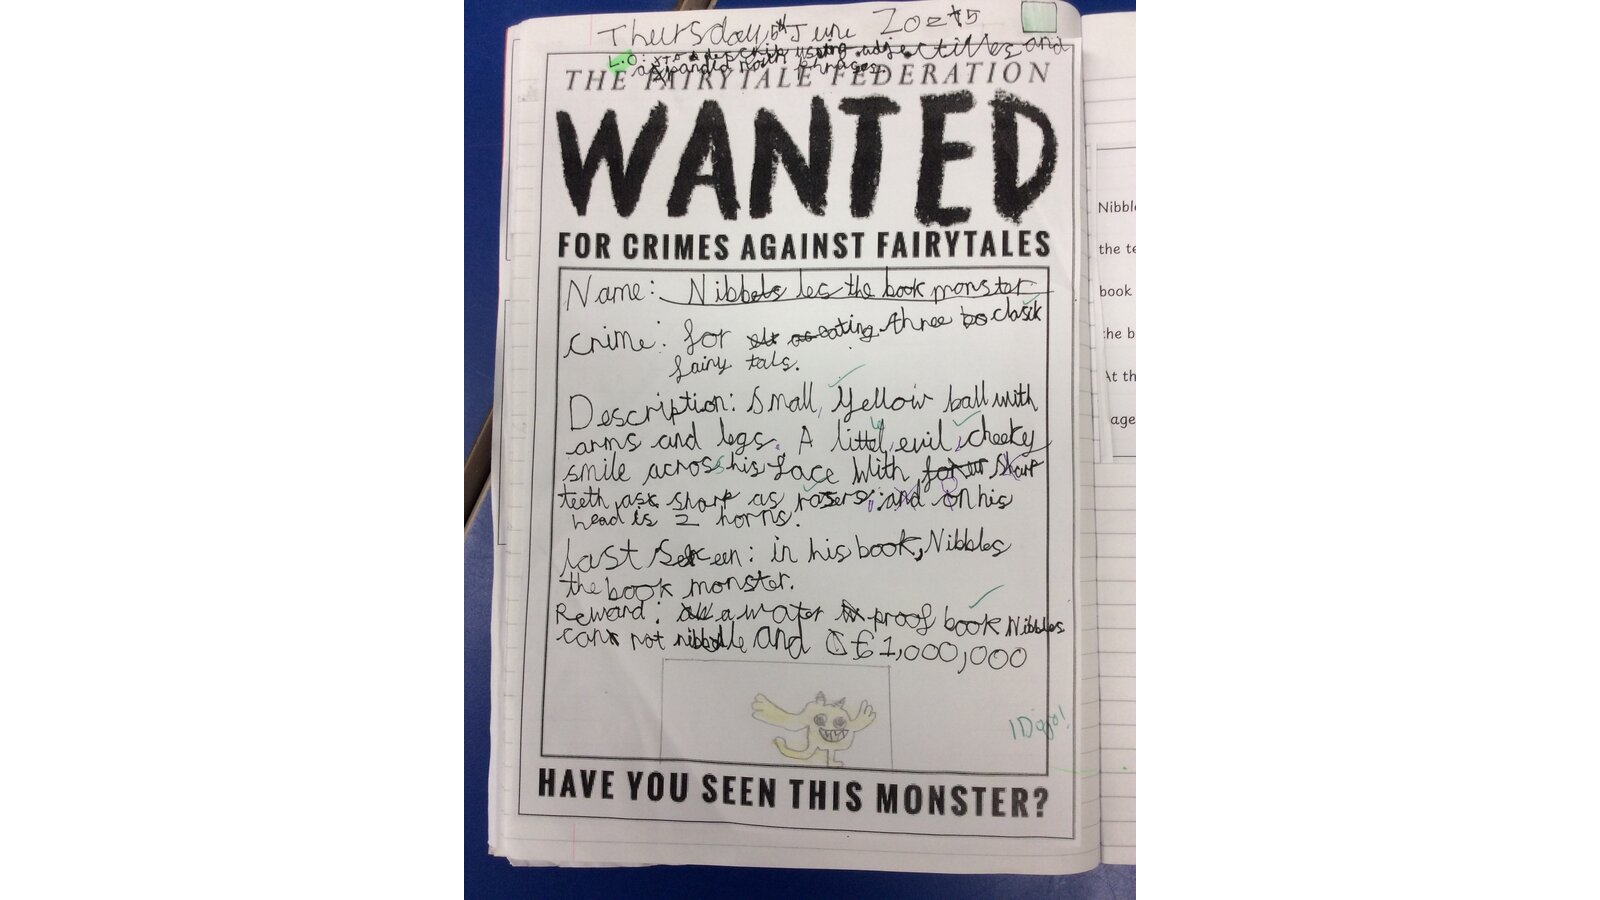 Thursday 5th June 2025
L.O: to describe using adjectives and
expanded noun phrases.
THE FAIRYTALE FEDERATION
WANTED
FOR CRIMES AGAINST FAIRYTALES
Name: Nibbels les the book monster
crime: for eating three clasik
fairy tals.
Description: Small, Yellow ball with
arms and legs. A little, evil, cheeky
smile across his face with sharp
teeth as sharp as rasers, and on his
head is 2 horns.
last Seen: in his book, Nibbles
the book monster.
Reward: a water proof book Nibbles
can not nibble and £1,000,000
1 Dojo!
HAVE YOU SEEN THIS MONSTER?
Nibble
the te
book
the b
At th
age